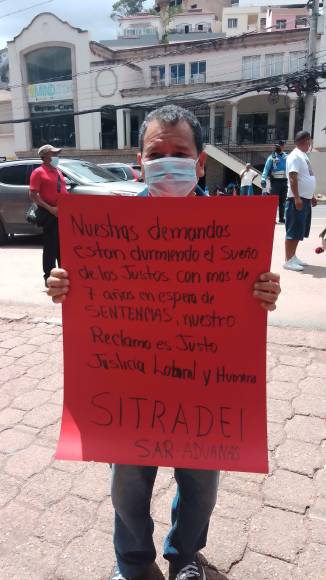 MIND
Nuestras demandas
estan durmiendo el Sueño
de los Justos con mas de
7 años en espera de
SENTENCIAS, nuestro
Reclamo es Justo
Justicia Laboral y Humana
SITRADEI
SAR-ADUANAS